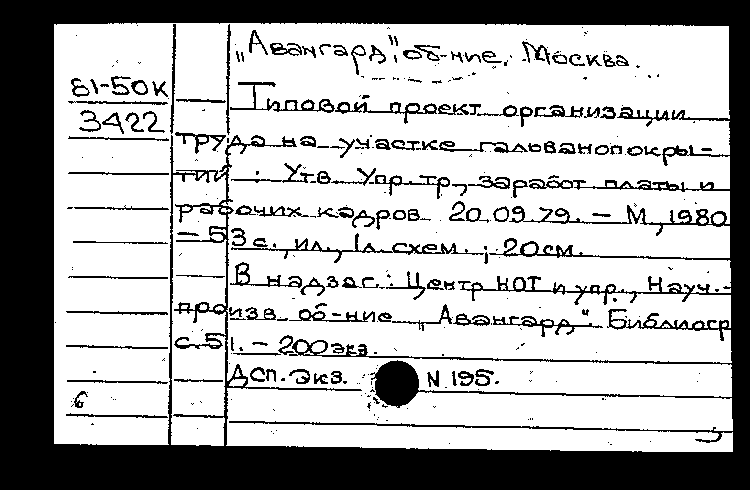 „Авангард", об-ние. Москва.
81-50К
3422
Типовой проект организации
труда на участке гальванопокры-
тий : Утв. Упр. тр., заработ. платы и
рабочих кадров 20.09.79. – М., 1980
– 53 с., ил., 1 л. схем. ; 20 см.
В надзаг.: Центр НОТ и упр., Науч.-
произв. об-ние „Авангард". Библиогр
с. 51. – 200 экз.
Дсп. Экз. N 195.
6